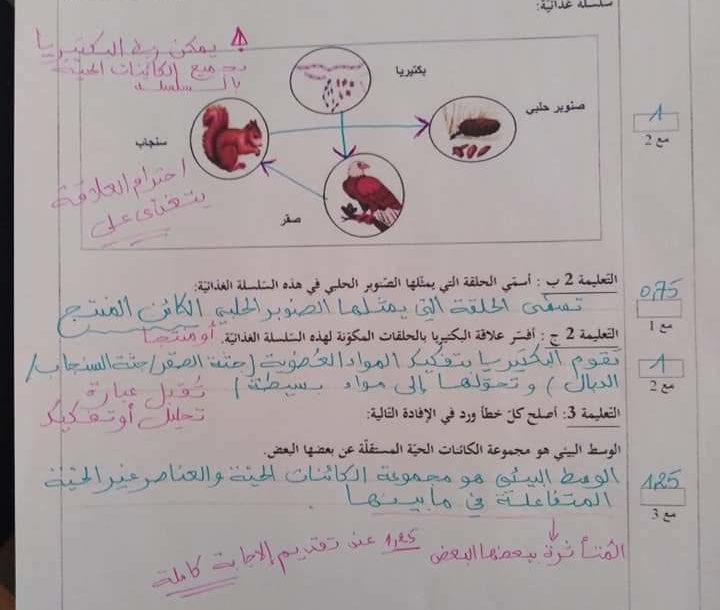 سلسلة غذائية:
⚠ يمكن ربط البكتيريا
بجميع الكائنات الحية
بالسلسلة
بكتيريا
صنوبر حلبي
سنجاب
صقر
احترام العلاقة
يتغذى على
1
مع 2
التعليمة 2 ب : أسمّي الحلقة التي يمثّلها الصّنوبر الحلبي في هذه السّلسلة الغذائيّة:
تسمى الحلقة التي يمثلها الصنوبر الحلبي الكائن المنتج
أو منتجا
0,75
مع 1
التعليمة 2 ج : أفسّر علاقة البكتيريا بالحلقات المكوّنة لهذه السّلسلة الغذائيّة.
تقوم البكتيريا بتفكيك المواد العضوية (جثة الصقر/جثة السنجاب/
الدبال) وتحوّلها إلى مواد بسيطة /
تُقبل عبارة
تحليل أو تفكيك
1
مع 2
التعليمة 3: أصلح كلّ خطأ ورد في الإفادة التّالية:
الوسط البيئي هو مجموعة الكائنات الحيّة المستقلّة عن بعضها البعض.
الوسط البيئي هو مجموعة الكائنات الحيّة والعناصر غير الحيّة
المتفاعلة في ما بينها.
1,25
مع 3
المتأثرة ببعضها البعض
1,25 عند تقديم الإجابة كاملة